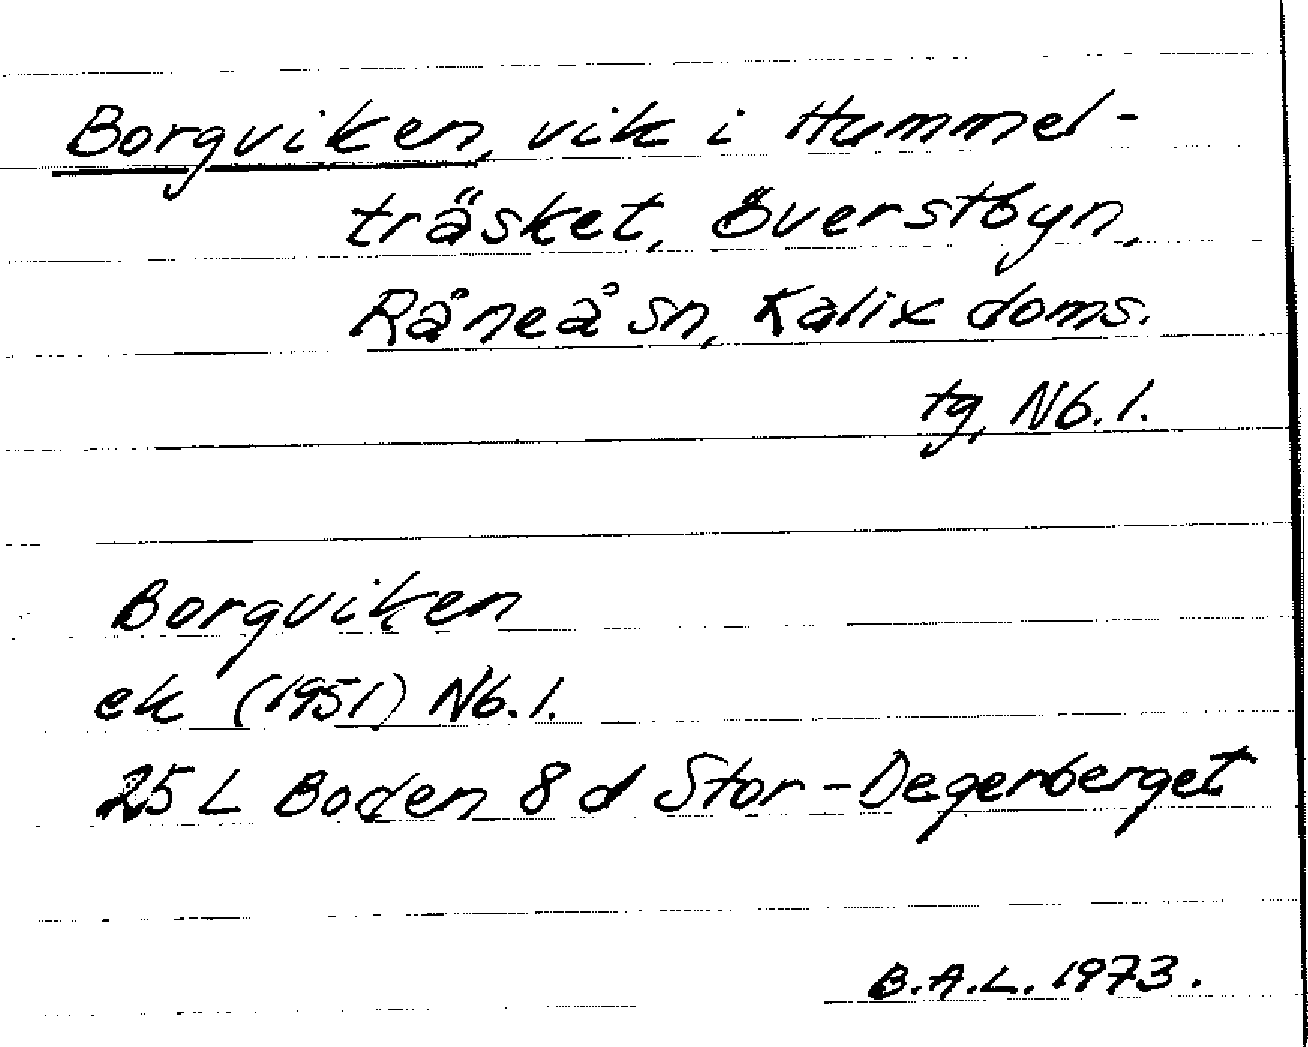 Borgviken, vik i Hummel-
träsket, Överstbyn,
Råneå sn, Kalix doms.
tg, Nb. l.
Borgviken
ek (1951) Nb. l.
25 L Boden 8 d Stor-Degerberget
B.A.L. 1973.